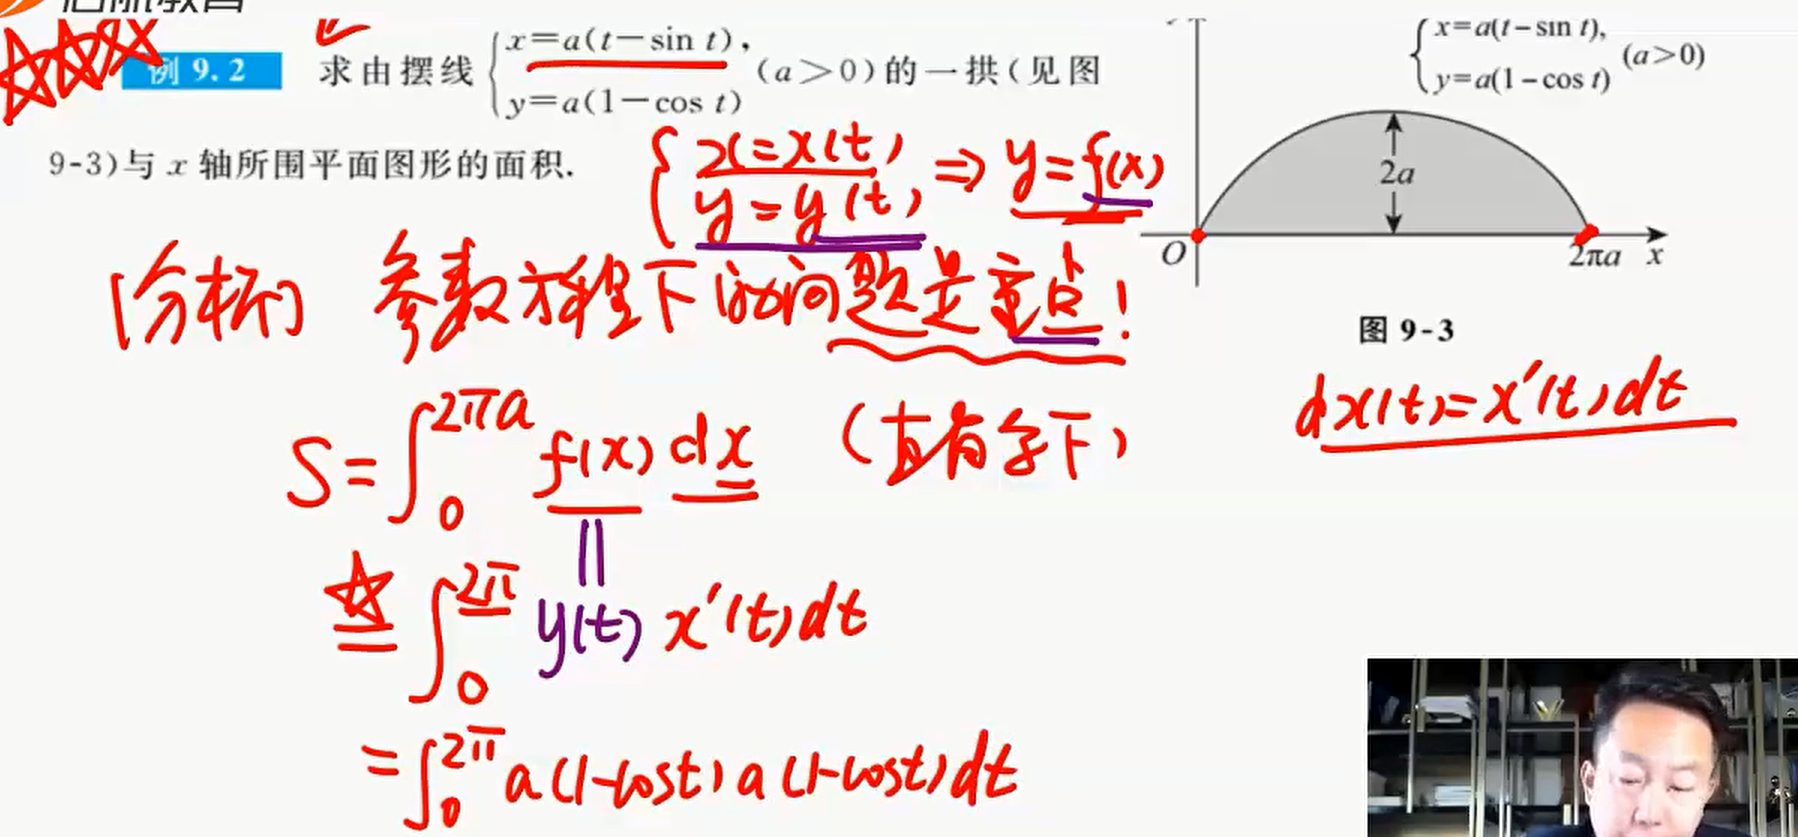 启航教育
例 9.2 求由摆线 { x=a(t-sin t), y=a(1-cos t) (a>0)的一拱(见图
9-3)与 x 轴所围平面图形的面积.
{ x=x(t) y=y(t) ⇒ y=f(x)
[分析] 参数方程下的问题是重点!
S=∫₀^{2πa} f(x)dx (直角系下)
||
☆= ∫₀^{2π} y(t) x′(t)dt
=∫₀^{2π} a(1-cost)a(1-cost)dt
{ x=a(t-sin t), y=a(1-cos t) (a>0)
2a
O 2πa x
图 9-3
dx(t)=x′(t)dt